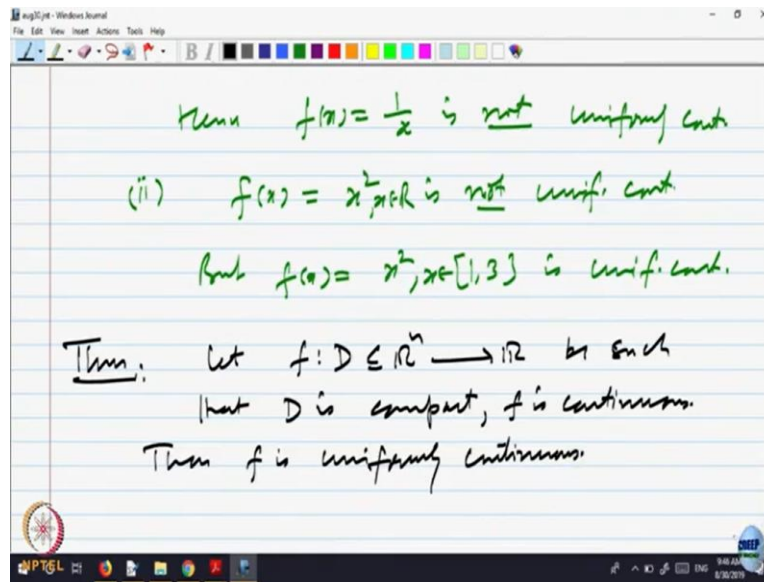 aug30.jnt - Windows Journal
File Edit View Insert Actions Tools Help
B I
Hence f(x) = 1/x is not uniformly cont.
(ii) f(x) = x², x∈ℝ is not unif. cont.
But f(x) = x², x∈[1,3] is unif. cont.
Thm: Let f : D ⊆ ℝⁿ → ℝ be such
that D is compact, f is continuous.
Then f is uniformly continuous.
NPTEL
CDEEP
ENG
9:46 AM
8/30/2019